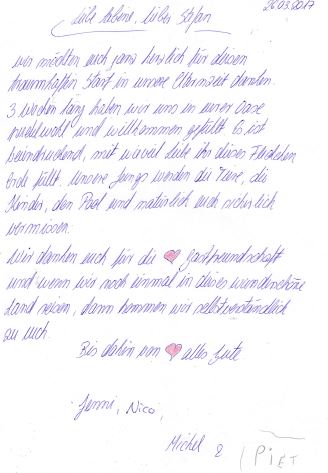 26.03.2017
Liebe Sabine, lieber Stefan
wir möchten euch ganz herzlich für diesen
traumhaften Start in unsere Elternzeit danken.
3 Wochen lang haben wir uns in eurer Oase
pudelwohl und willkommen gefühlt. Es ist
beeindruckend, mit wieviel Liebe ihr dieses Fleckchen
Erde füllt. Unsere Jungs werden die Tiere, die
Kinder, den Pool und natürlich euch sicherlich
vermissen.
Wir danken euch für die ♥ Gastfreundschaft
und wenn wir noch einmal in dieses wunderschöne
Land reisen, dann kommen wir selbstverständlich
zu euch.
Bis dahin von ♥ alles Gute
Jenni, Nico,
Michel & (PIET